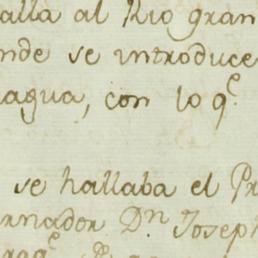 alla al Rio gran
nde se introduce
agua, con lo q.e
se hallaba el Pr
ernador Dn Joseph